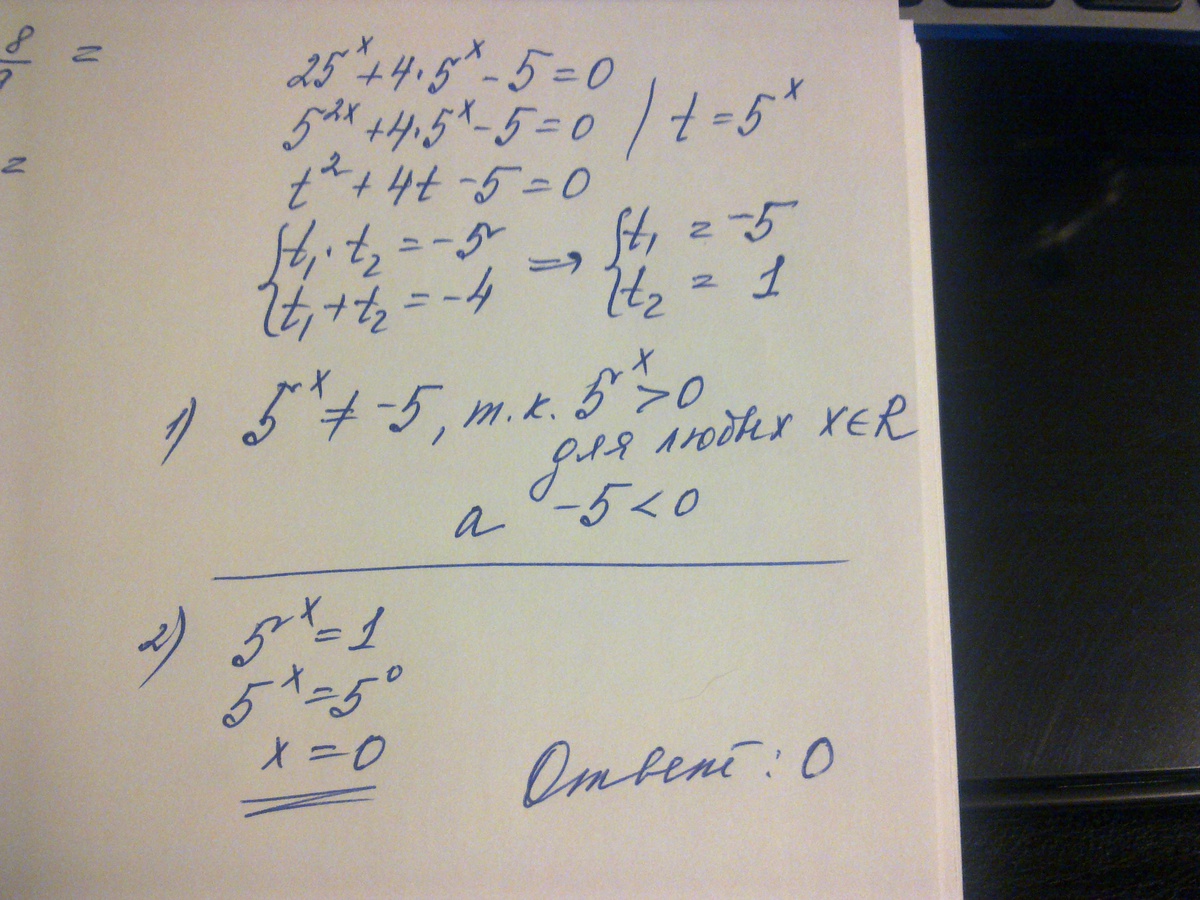 8/9 =
=
25^x + 4·5^x - 5 = 0
5^2x + 4·5^x - 5 = 0 / t = 5^x
t^2 + 4t - 5 = 0
{t₁·t₂ = -5 ⇒ {t₁ = -5
{t₁ + t₂ = -4 {t₂ = 1
1) 5^x ≠ -5, т.к. 5^x > 0
для любых x∈R
а -5 < 0
2) 5^x = 1
5^x = 5^0
x = 0
Ответ: 0